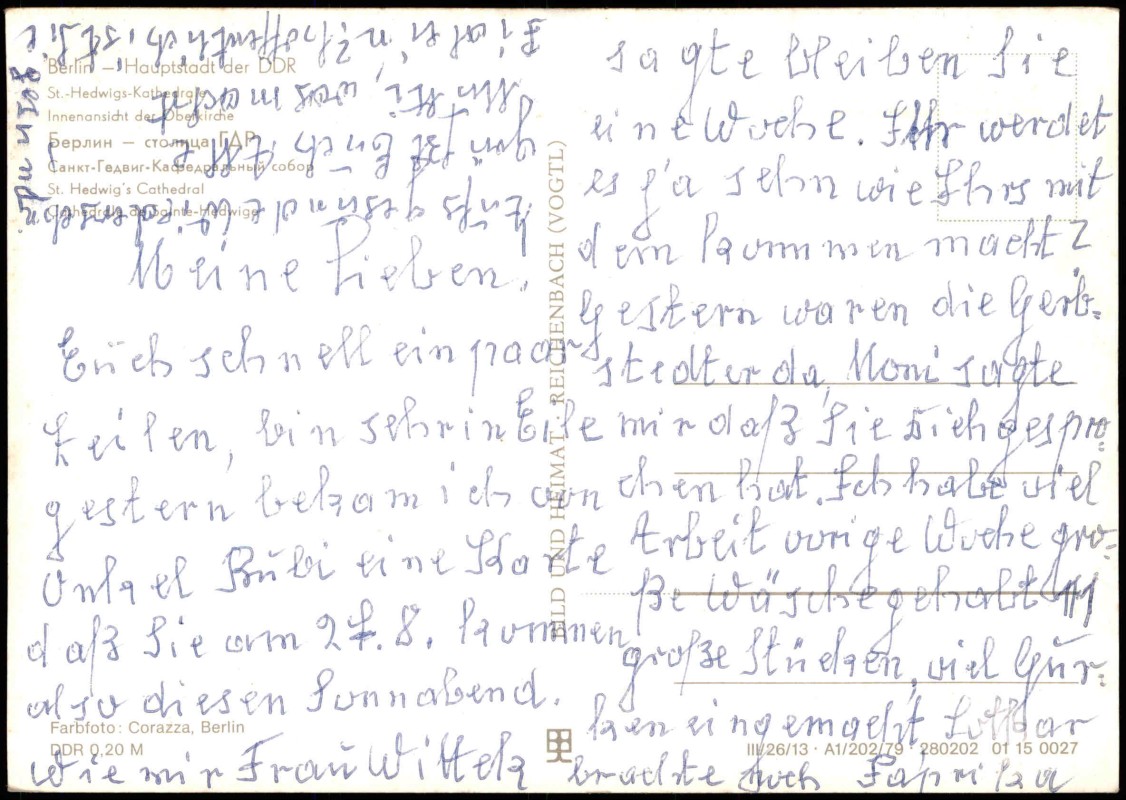 Meine Lieben.
Euch schnell ein paar
Zeilen, bin sehr in Eile
gestern bekam ich von
Onkel Bubi eine Karte
daß Sie am 27.8. kommen
also diesen Sonnabend.
wie mir Frau Wittek
sagte bleiben Sie
eine Woche. Ihr werdet
es ja sehn wie Ihrs mit
dem kommen macht?
Gestern waren die Gerb=
stedter da, Moni sagte
mir daß Sie Dich gespro=
chen hat. Ich habe viel
Arbeit vorige Woche gro=
ße Wäsche gehabt
große Stücken, viel Gur=
ken eingemacht, Lothar
brachte noch Paprika
hoffentlich ist Sie
was macht
grüßt Euch
gesund Wiedersehn
Berlin — Hauptstadt der DDR
St.-Hedwigs-Kathedrale
Innenansicht der Oberkirche
Берлин — столица ГДР
Санкт-Гедвиг-Кафедральный собор
St. Hedwig's Cathedral
Cathédrale de Sainte-Hedwige
BILD UND HEIMAT · REICHENBACH (VOGTL)
Farbfoto: Corazza, Berlin
DDR 0,20 M
III/26/13 · A1/202/79 · 280202 01 15 0027